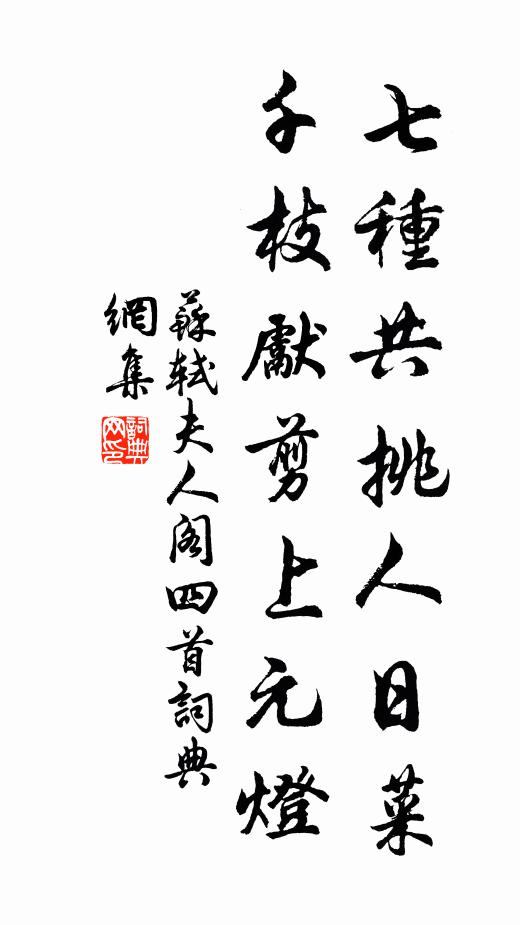 七種共挑人日菜
千枝獻剪上元燈
蘇軾夫人閣四首詞典
網集
詞典
网印